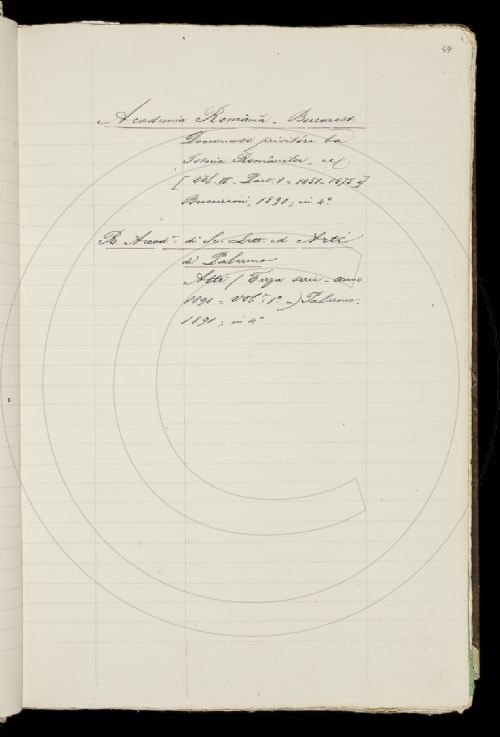 59
Academia Română - Bucarest
Documente privitóre la
Istoria Românilor, ecc.
[Vol. II - Part. 1 = 1451-1575 =]
Bucuresci, 1891; in 4°
R. Accad. di Sc. Lett. ed Arti
di Palermo
Atti (Terza serie - anno
1891 = Vol. 1° =) Palermo,
1891; in 4°